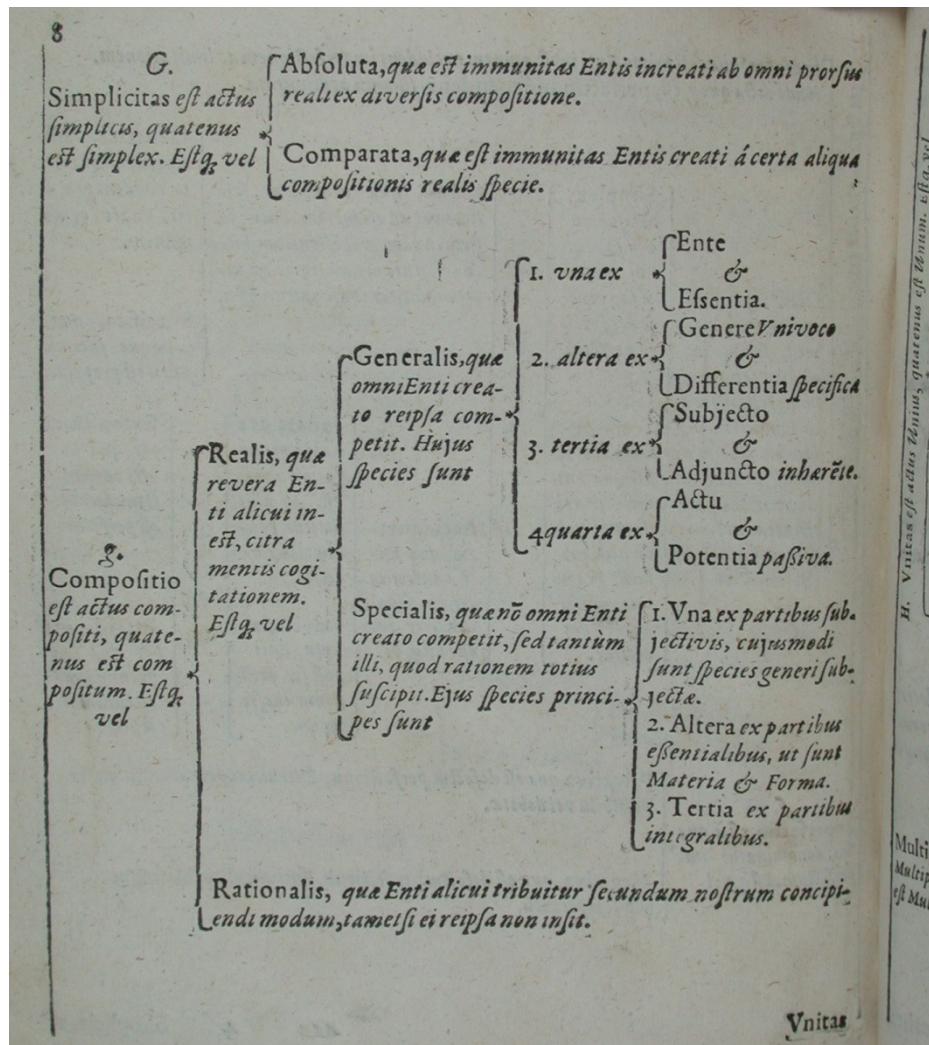 8
G.
Simplicitas est actus
simplicis, quatenus
est simplex. Estq; vel
Absoluta, quæ est immunitas Entis increati ab omni prorsus
reali ex diversis compositione.
Comparata, quæ est immunitas Entis creati á certa aliqua
compositionis realis specie.
g.
Compositio
est actus com-
positi, quate-
nus est com
positum. Estq;
vel
Realis, quæ
revera En-
ti alicui in-
est, citra
mentis cogi-
tationem.
Estq; vel
Generalis, quæ
omni Enti crea-
to reipsa com-
petit. Hujus
species sunt
1. vna ex
Ente
&
Essentia.
2. altera ex
Genere Vnivoco
&
Differentia specifica
3. tertia ex
Subjecto
&
Adjuncto inhærẽte.
4 quarta ex
Actu
&
Potentia passiva.
Specialis, quæ nõ omni Enti
creato competit, sed tantùm
illi, quod rationem totius
suscipit. Ejus species princi-
pes sunt
1. Vna ex partibus sub-
jectivis, cujusmodi
sunt species generi sub-
jectæ.
2. Altera ex partibus
essentialibus, ut sunt
Materia & Forma.
3. Tertia ex partibus
integralibus.
Rationalis, quæ Enti alicui tribuitur secundum nostrum concipi-
endi modum, tametsi ei reipsa non insit.
Vnitas
H. Vnitas est actus Unius, quatenus est Unum. Estq; vel
Multi
Multip
est Mul